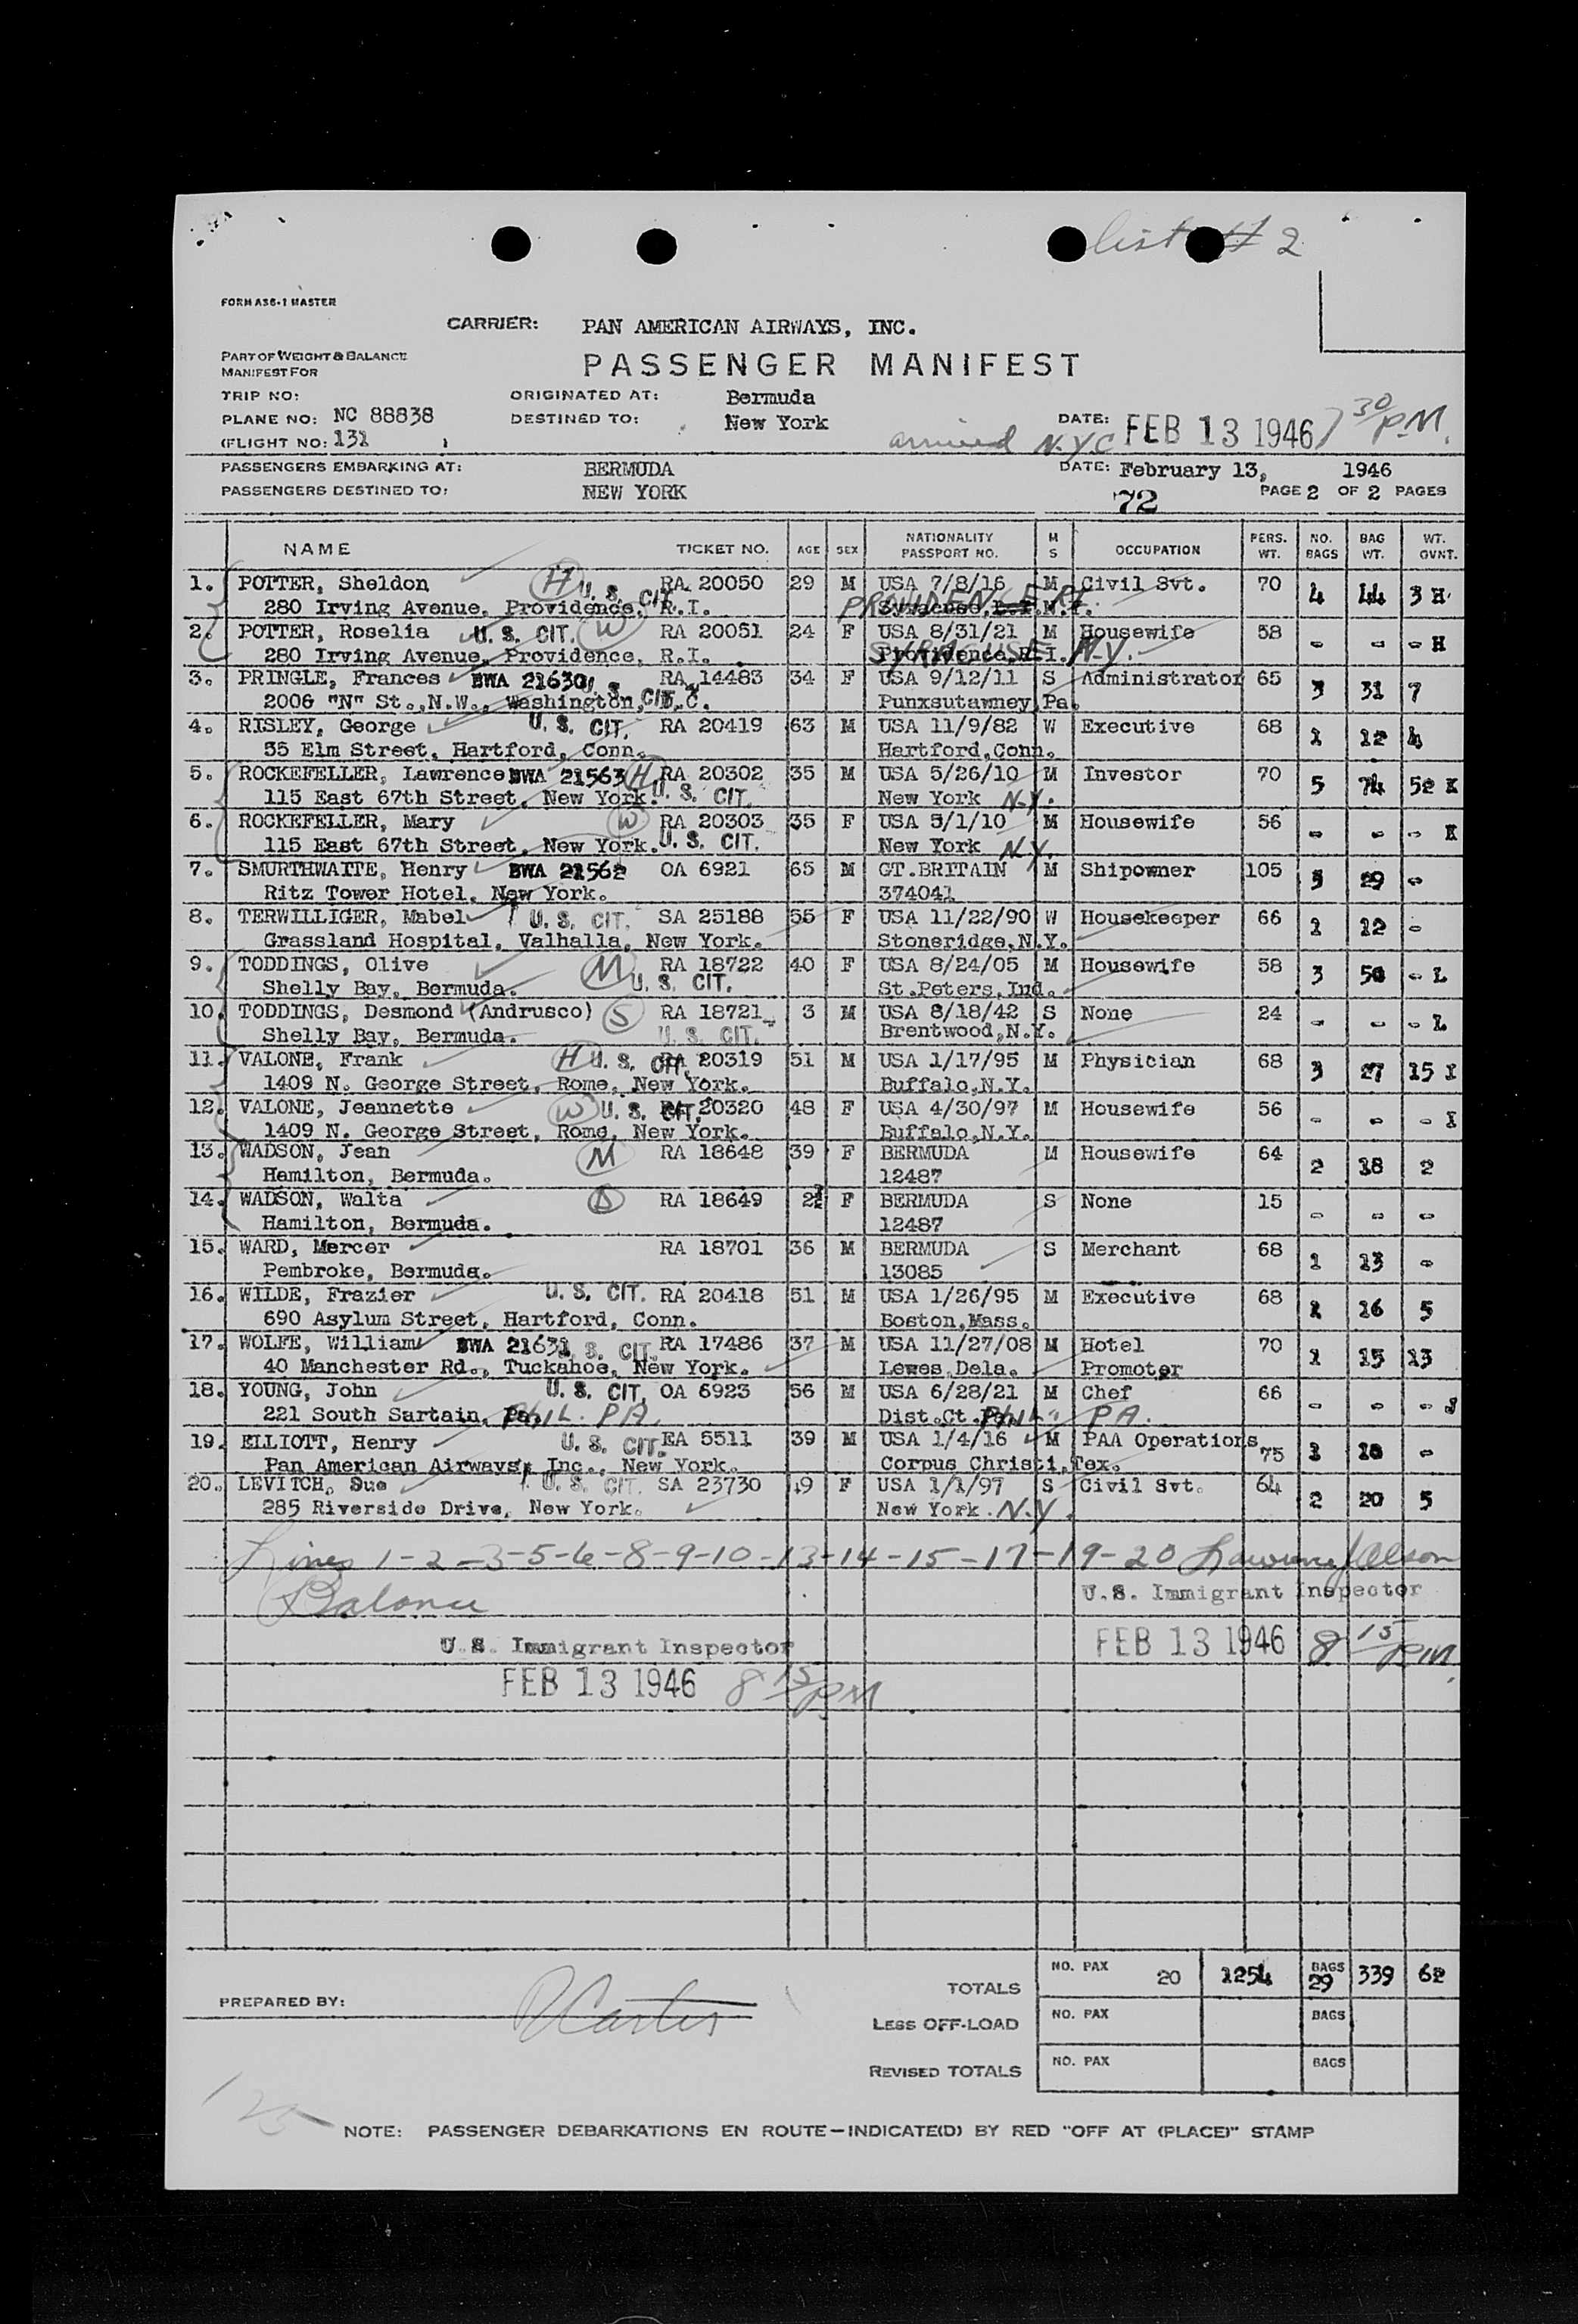 list # 2
FORM A36-1 MASTER
CARRIER: PAN AMERICAN AIRWAYS, INC.
PART OF WEIGHT & BALANCE
MANIFEST FOR
PASSENGER MANIFEST
TRIP NO: ORIGINATED AT: Bermuda
PLANE NO: NC 88838 DESTINED TO: New York DATE: FEB 13 1946 7 30 P.M.
(FLIGHT NO: 131 ) arrived N.Y.C
PASSENGERS EMBARKING AT: BERMUDA DATE: February 13, 1946
PASSENGERS DESTINED TO: NEW YORK 72 PAGE 2 OF 2 PAGES
NAME TICKET NO. AGE SEX NATIONALITY PASSPORT NO. M S OCCUPATION PERS. WT. NO. BAGS BAG WT. WT. OVNT.
1. POTTER, Sheldon H U. S. CIT. RA 20050 29 M USA 7/8/16 M Civil Svt. 70 4 44 3 H
280 Irving Avenue, Providence, R.I. Syracuse, N.Y. PROVIDENCE R.I.
2. POTTER, Roselia U. S. CIT. W RA 20051 24 F USA 8/31/21 M Housewife 58 - - - H
280 Irving Avenue, Providence, R.I. Providence, R.I. SYRACUSE N.Y.
3. PRINGLE, Frances BWA 21630 U. S. CIT. RA 14483 34 F USA 9/12/11 S Administrator 65 3 31 7
2006 "N" St., N.W., Washington, D.C. Punxsutawney, Pa.
4. RISLEY, George U. S. CIT. RA 20419 63 M USA 11/9/82 W Executive 68 1 12 4
35 Elm Street, Hartford, Conn. Hartford, Conn.
5. ROCKEFELLER, Lawrence BWA 21563 H RA 20302 35 M USA 5/26/10 M Investor 70 5 74 52 K
115 East 67th Street, New York. U. S. CIT. New York N.Y.
6. ROCKEFELLER, Mary W RA 20303 35 F USA 5/1/10 M Housewife 56 - - - K
115 East 67th Street, New York. U. S. CIT. New York N.Y.
7. SMURTHWAITE, Henry BWA 21562 OA 6921 65 M GT.BRITAIN M Shipowner 105 3 29 -
Ritz Tower Hotel, New York. 374041
8. TERWILLIGER, Mabel U. S. CIT. SA 25188 55 F USA 11/22/90 W Housekeeper 66 1 12 -
Grassland Hospital, Valhalla, New York. Stoneridge, N.Y.
9. TODDINGS, Olive M RA 18722 40 F USA 8/24/05 M Housewife 58 3 50 - L
Shelly Bay, Bermuda. U. S. CIT. St.Peters, Ind.
10. TODDINGS, Desmond (Andrusco) S RA 18721 3 M USA 8/18/42 S None 24 - - - L
Shelly Bay, Bermuda. U. S. CIT. Brentwood, N.Y.
11. VALONE, Frank H U. S. CIT. RA 20319 51 M USA 1/17/95 M Physician 68 3 27 15 I
1409 N. George Street, Rome, New York. Buffalo, N.Y.
12. VALONE, Jeannette W U. S. CIT. RA 20320 48 F USA 4/30/97 M Housewife 56 - - - I
1409 N. George Street, Rome, New York. Buffalo, N.Y.
13. WADSON, Jean M RA 18648 39 F BERMUDA M Housewife 64 2 18 2
Hamilton, Bermuda. 12487
14. WADSON, Walta D RA 18649 2½ F BERMUDA S None 15 - - -
Hamilton, Bermuda. 12487
15. WARD, Mercer RA 18701 36 M BERMUDA S Merchant 68 1 13 -
Pembroke, Bermuda. 13085
16. WILDE, Frazier U. S. CIT. RA 20418 51 M USA 1/26/95 M Executive 68 1 16 5
690 Asylum Street, Hartford, Conn. Boston, Mass.
17. WOLFE, William BWA 21631 U. S. CIT. RA 17486 37 M USA 11/27/08 M Hotel 70 1 15 13
40 Manchester Rd., Tuckahoe, New York. Lewes, Dela. Promoter
18. YOUNG, John U. S. CIT. OA 6923 56 M USA 6/28/21 M Chef 66 - - - J
221 South Sartain, Pa. PHIL. PA. Dist.Ct.Pa. PHIL. PA.
19. ELLIOTT, Henry U. S. CIT. EA 5511 39 M USA 1/4/16 M PAA Operations 75 1 10 -
Pan American Airways, Inc., New York. Corpus Christi, Tex.
20. LEVITCH, Sue U. S. CIT. SA 23730 49 F USA 1/1/97 S Civil Svt. 64 2 20 5
285 Riverside Drive, New York. New York. N.Y.
Lines 1-2-3-5-6-8-9-10-13-14-15-17-19-20 Olson
Balance U.S. Immigrant Inspector
U.S. Immigrant Inspector FEB 13 1946 8 15 P.M.
FEB 13 1946 8 15 PM
TOTALS NO. PAX 20 1254 BAGS 29 339 62
PREPARED BY:
LESS OFF-LOAD NO. PAX BAGS
REVISED TOTALS NO. PAX BAGS
NOTE: PASSENGER DEBARKATIONS EN ROUTE—INDICATE(D) BY RED "OFF AT (PLACE)" STAMP